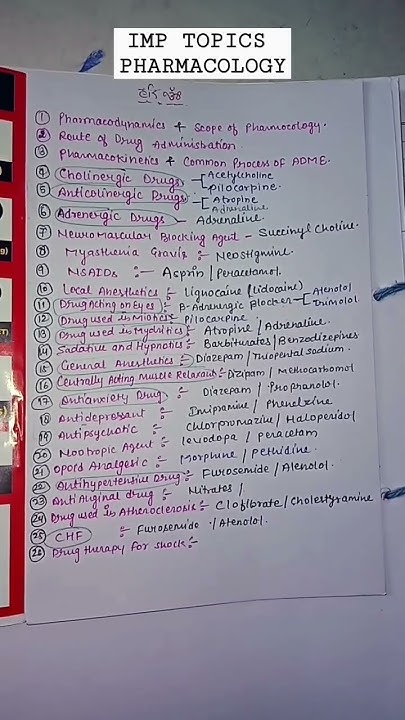 IMP TOPICS
PHARMACOLOGY
① Pharmacodynamics & Scope of Pharmocology.
② Route of Drug Administration
③ Pharmacokinetics & Common Process of ADME.
④ Cholinergic Drugs - Acetylcholine
Pilocarpine.
⑤ Anticolinergic Drugs - Atropine
Adrenaline
⑥ Adrenergic Drugs - Adrenaline.
⑦ Neuromascular Blocking Agent - Succinyl Choline.
⑧ Myasthenia Gravis :- Neostigmine.
⑨ NSAIDs :- Asprin / Peracetamol.
⑩ Local Anesthetics :- Lignocaine (lidocaine)
⑪ Drug Acting on Eyes :- B-Adrenergic Blocker - Atenolol
Timolol.
⑫ Drug used in Miotics :- Pilocarpine
⑬ Drug used in Mydritics :- Atropine / Adrenaline.
⑭ Sadative and Hypnotics :- Barbiturates / Benzodizepines
⑮ General Anesthetics :- Diazepam / Thiopental sodium.
⑯ Centrally Acting Muscle Relaxant :- Dizipam / Methocarbomol
⑰ Antianxiety Drug :- Diazepam / Propranolol.
⑱ Antidepressant :- Imipramine / Phenelzine
⑲ Antipsychotic :- Chlorpromazin / Haloperidol
⑳ Nootropic Agent :- levodopa / peracetam
㉑ Opoid Analgesic :- Morphine / Pethidine.
㉒ Antihypertensive Drug :- Furosemide / Atenolol.
㉓ Anti Anginal drug :- Nitrates /
㉔ Drug used in Atheroclerosis :- Clofibrate / Cholestyramine
㉕ CHF :- Furosemide / Atenolol.
㉖ Drug therapy for shock :-